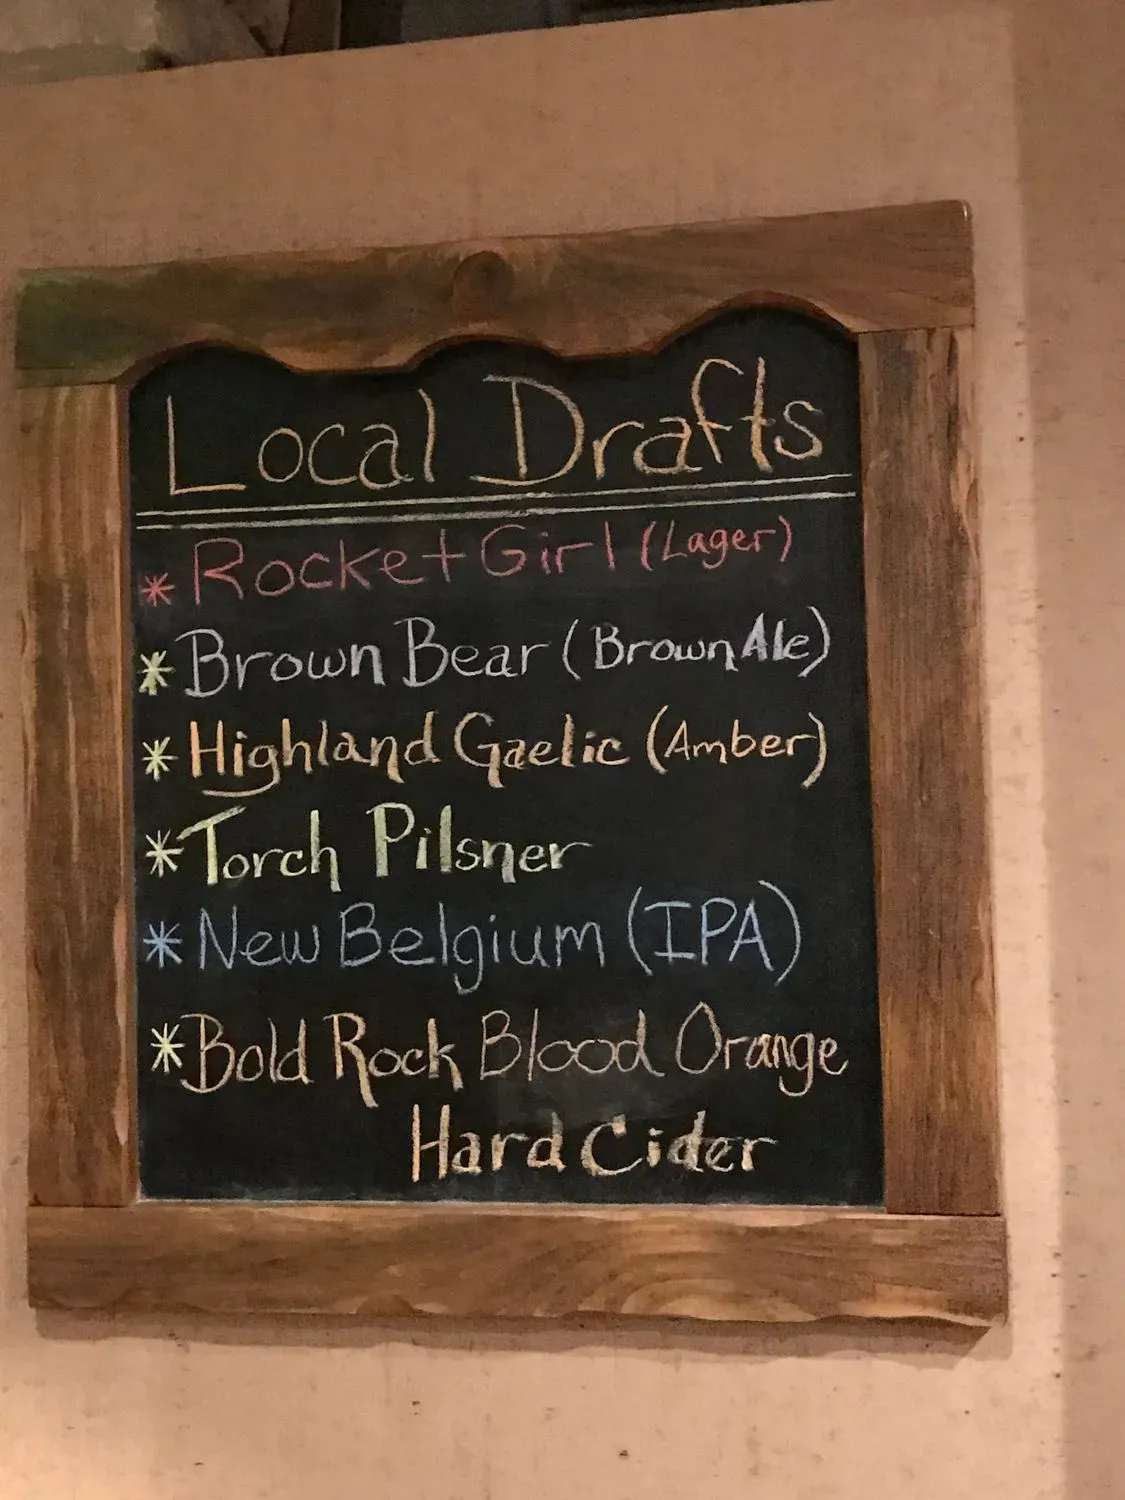 Local Drafts
* Rocket Girl (Lager)
* Brown Bear (Brown Ale)
* Highland Gaelic (Amber)
* Torch Pilsner
* New Belgium (IPA)
* Bold Rock Blood Orange
Hard Cider